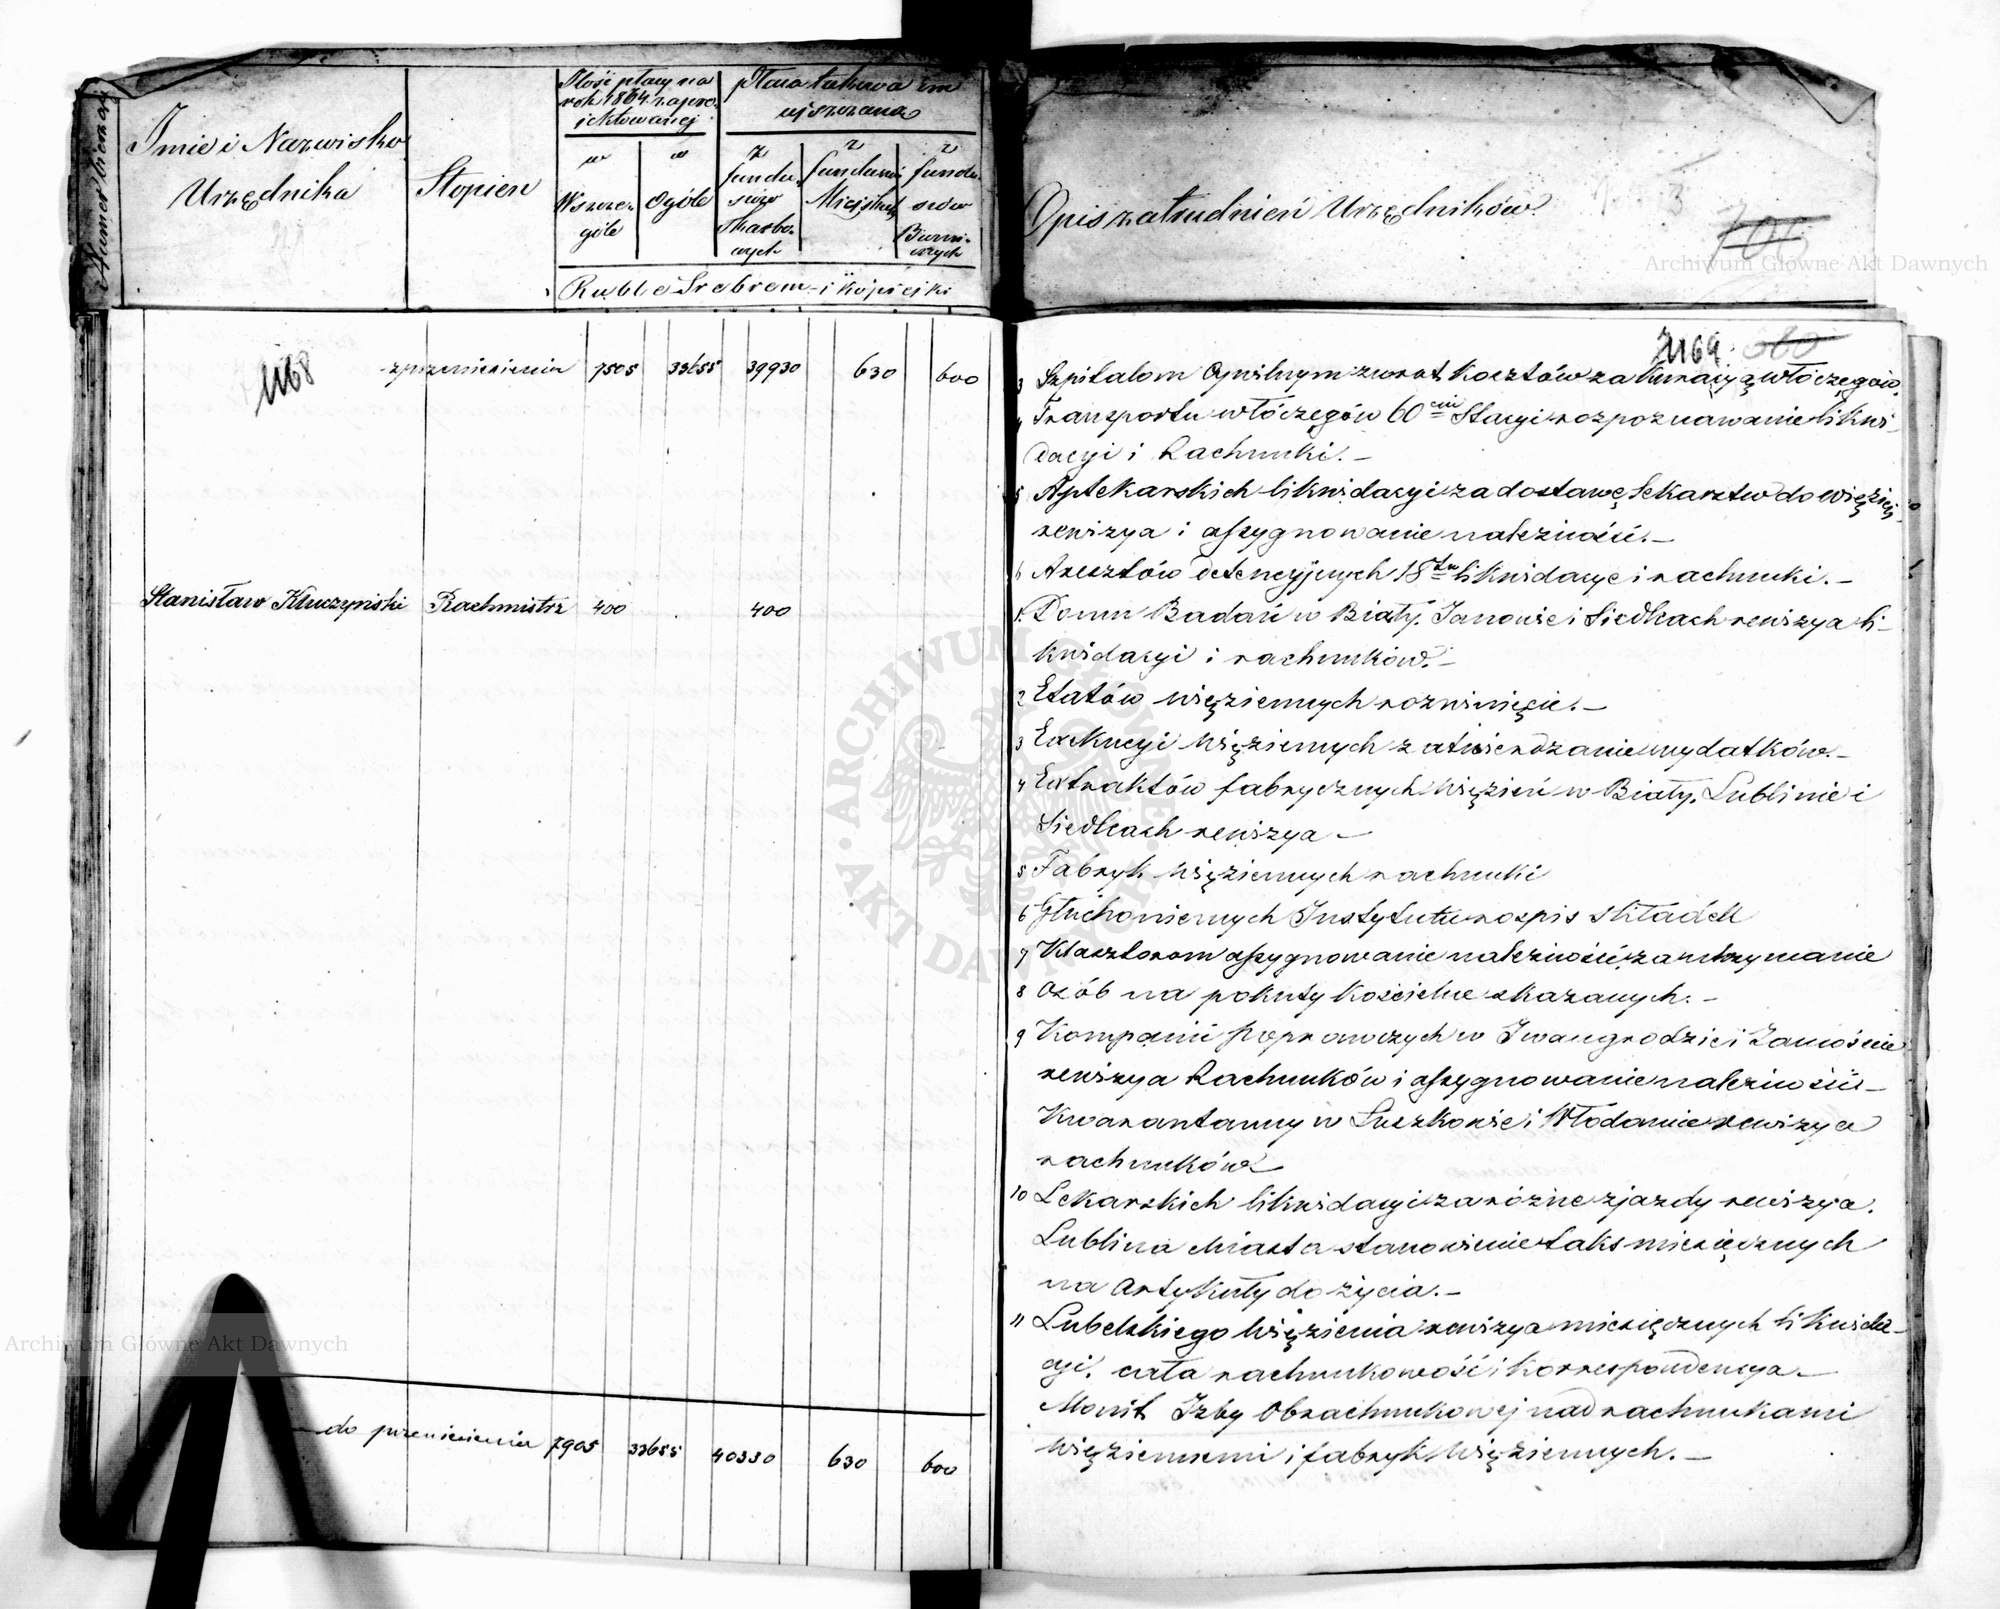 Numer bieżący
Imie i Nazwisko
Urzędnika
Stopień
Ilość płacy na
rok 1864 zapro-
jektowanej
w
Wszcze-
góle
w
Ogóle
płaca takowa jest
uiszczana
z
fundu-
szów
Skarbo-
wych
z
funduszów
Miejskich
z
fundu-
szów
Ruble Srebrem i kopiejki
Opis zatrudnień Urzędników
700
1168
z przeniesienia 7505 33655 39930 630 600
Stanisław Kluczyński Rachmistrz 400 . 400
do przeniesienia 7905 33655 40330 630 600
1169 680
3 Szpitalom Cywilnym zwrot Kosztów za Kuracyą włóczęgów.
4 Transportu włóczęgów 60ciu Stacyi rozpoznawanie likwi-
dacyi i Rachunki. –
5 Aptekarskich likwidacyi za dostawę Lekarstw do więzień
rewizya i assygnowanie należności. –
6 Aresztów detencyjnych 18tu likwidacye i rachunki. –
1. Domu Badań w Biały, Janowie i Siedlcach rewizya li-
kwidacyi i rachunków. –
2 Etatów więziennych rozwinięcie. –
3 Exekucyi więziennych zatwierdzanie wydatków. –
4 Extraktów fabrycznych więzień w Biały, Lublinie i
Siedlcach rewizya –
5 Fabryk więziennych rachunki
6 Głuchoniemych Instytutu rozpis składek
7 Klasztorom assygnowanie należności za utrzymanie
8 Osób na pokuty Kościelne skazanych. –
9 Kompanii Poprawczych w Iwangrodzie i Zamościu
rewizya Rachunków i assygnowanie należności –
Kwarantanny w Łuszkowie i Włodawie rewizya
rachunków
10 Lekarskich likwidacyi za różne zjazdy rewizya.
Lublina Miasta stanowienie taks miesięcznych
na Artykuły do życia. –
11 Lubelskiego Więzienia rewizya miesięcznych likwida-
cyi, cała rachunkowość i Korrespondencya. –
Monit Izby Obrachunkowej nad rachunkami
więziennemi i fabryk więziennych. –
Archiwum Główne Akt Dawnych
Archiwum Główne Akt Dawnych
ARCHIWUM GŁÓWNE · AKT DAWNYCH ·